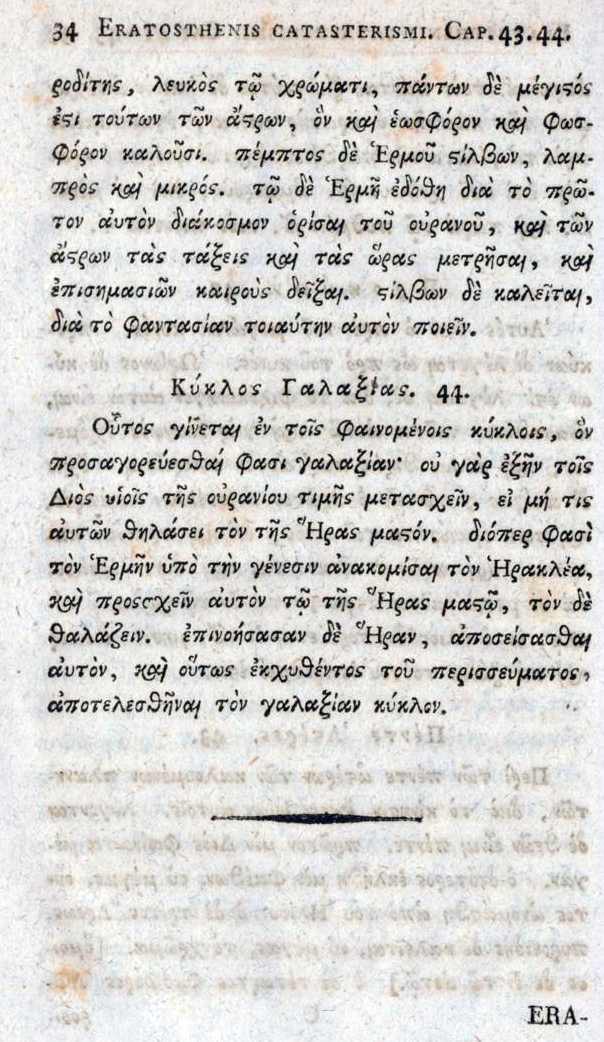 34 ERATOSTHENIS CATASTERISMI. CAP. 43. 44.
ροδίτης, λευκὸς τῷ χρώματι, πάντων δὲ μέγιϛός
ἐϛι τούτων τῶν ἄϛρων, ὃν καὶ ἑωσφόρον καὶ φωσ-
φόρον καλοῦσι. πέμπτος δὲ Ἑρμοῦ ϛίλβων, λαμ-
πρὸς καὶ μικρός. τῷ δὲ Ἑρμῇ ἐδόθη διὰ τὸ πρῶ-
τον αὐτὸν διάκοσμον ὁρίσαι τοῦ οὐρανοῦ, καὶ τῶν
ἄϛρων τὰς τάξεις καὶ τὰς ὥρας μετρῆσαι, καὶ
ἐπισημασιῶν καιροὺς δεῖξαι. ϛίλβων δὲ καλεῖται,
διὰ τὸ φαντασίαν τοιαύτην αὐτὸν ποιεῖν.
Κύκλος Γαλαξίας. 44.
Οὗτος γίνεται ἐν τοῖς φαινομένοις κύκλοις, ὃν
προσαγορεύεσθαί φασι γαλαξίαν· οὐ γὰρ ἐξῆν τοῖς
Διὸς υἱοῖς τῆς οὐρανίου τιμῆς μετασχεῖν, εἰ μή τις
αὐτῶν θηλάσει τὸν τῆς Ἥρας μαϛόν. διόπερ φασὶ
τὸν Ἑρμῆν ὑπὸ τὴν γένεσιν ἀνακομίσαι τὸν Ἡρακλέα,
καὶ προσσχεῖν αὐτὸν τῷ τῆς Ἥρας μαϛῷ, τὸν δὲ
θαλάζειν. ἐπινοήσασαν δὲ Ἥραν, ἀποσείσασθαι
αὐτὸν, καὶ οὕτως ἐκχυθέντος τοῦ περισσεύματος,
ἀποτελεσθῆναι τὸν γαλαξίαν κύκλον.
ERA-